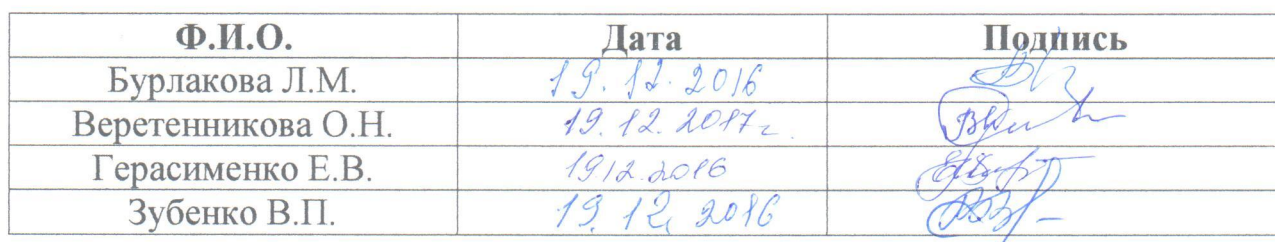 Ф.И.О. Дата Подпись
Бурлакова Л.М. 19.12.2016
Веретенникова О.Н. 19.12.2017г.
Герасименко Е.В. 1912.2016
Зубенко В.П. 19.12, 2016